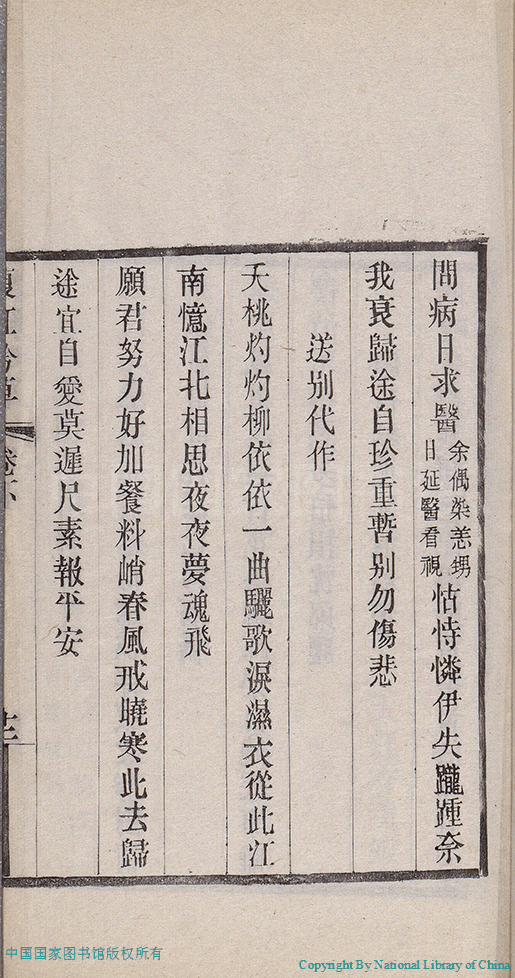 問病日求醫余偶染恙甥日延醫看視怙恃憐伊失龍踵奈
我衰歸途自珍重暫別勿傷悲
送別代作
夭桃灼灼柳依依一曲驪歌淚濕衣從此江
南憶江北相思夜夜夢魂飛
願君努力好加餐料峭春風戒曉寒此去歸
途宜自愛莫遲尺素報平安
吟草 卷下
中国国家图书馆版权所有
Copyright By National Library of China